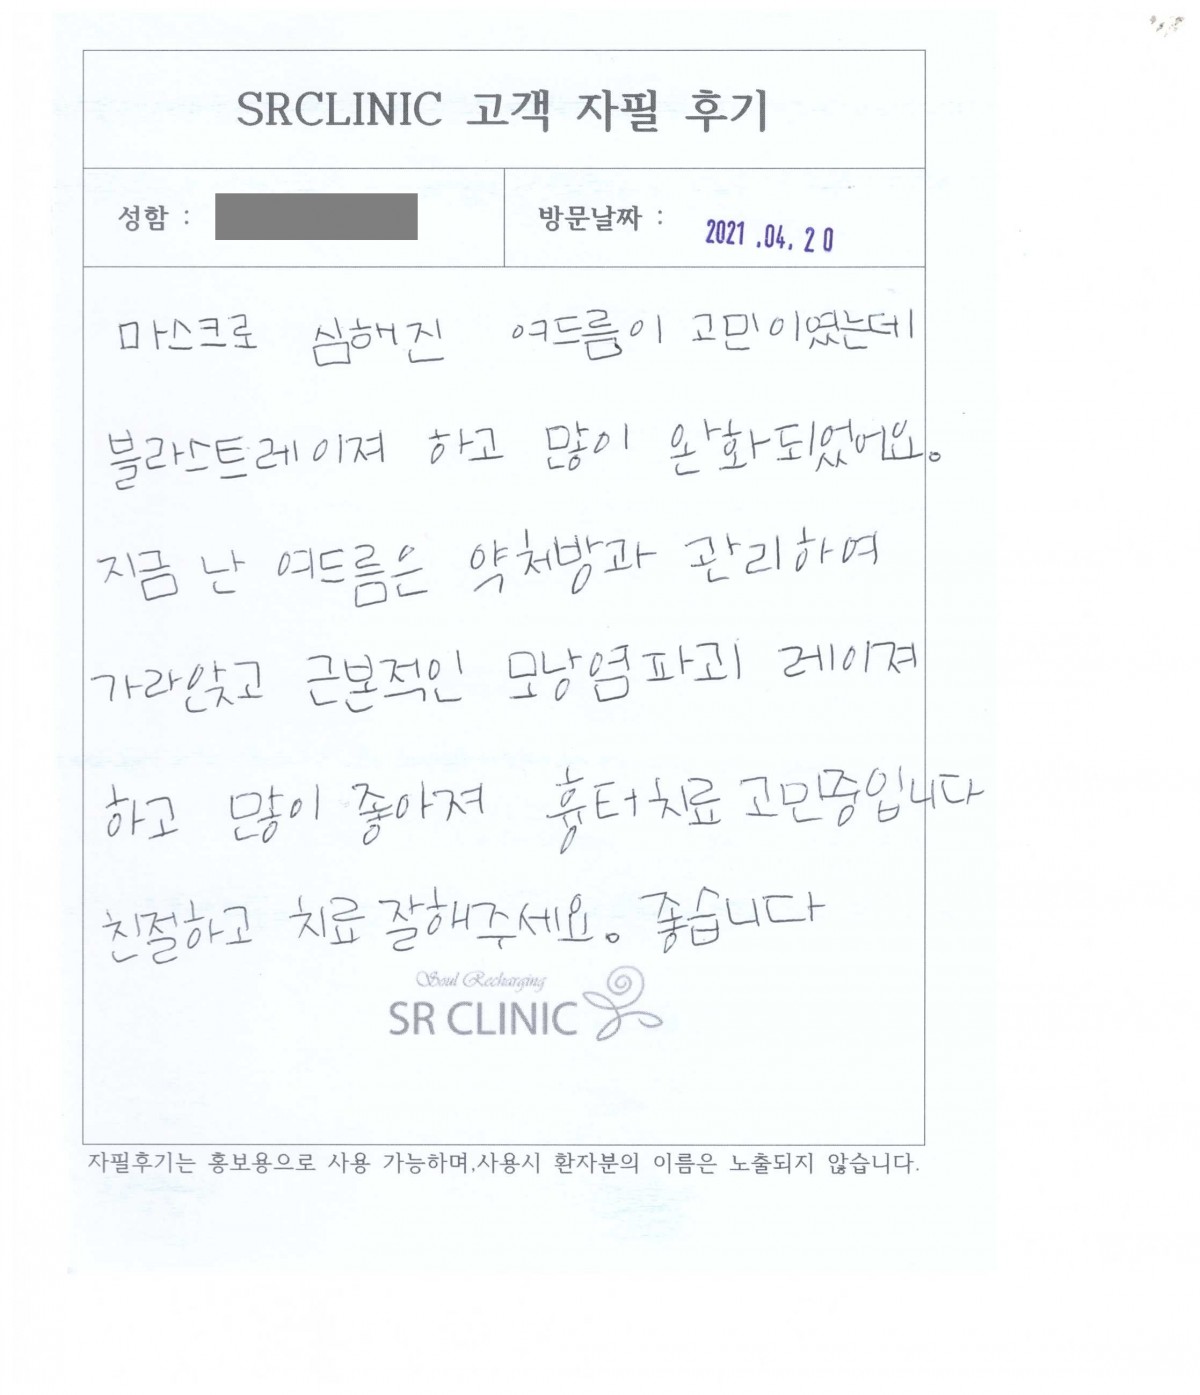 SRCLINIC 고객 자필 후기
성함 :
방문날짜 : 2021.04.20
마스크로 심해진 여드름이 고민이였는데
블라스트레이져 하고 많이 완화되었어요.
지금 난 여드름은 약처방과 관리하여
가라앉고 근본적인 모낭염파괴 레이져
하고 많이 좋아져 흉터치료 고민중입니다
친절하고 치료 잘해주세요. 좋습니다
Soul Recharging
SR CLINIC
자필후기는 홍보용으로 사용 가능하며,사용시 환자분의 이름은 노출되지 않습니다.